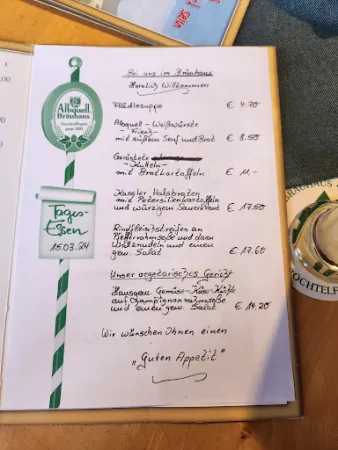 Albquell
Bräuhaus
Bei uns im Bräuhaus
Herzlich Willkommen
Flädlesuppe € 4.70
Albquell - Weißwürste
- Frisch -
mit süßem Senf und Brot € 8.50
Geröstete
- Kutteln -
mit Bratkartoffeln € 11,-
Kassler Halsbraten
mit Petersilienkartoffeln
und würzigem Sauerkraut € 17.50
Rindfleischstreifen an
Pfefferrahmsoße und dazu
Bandnudeln und einen
gem. Salat € 17.60
Unser vegetarisches Gericht
Hausgem. Gemüse-Käse-Küchle
auf Champignonrahmsoße
und einen gem. Salat € 14.20
Wir wünschen Ihnen einen
„Guten Appetit"
Tages-
Essen
15.03.24
BRÄUHAUS
OCHTELF